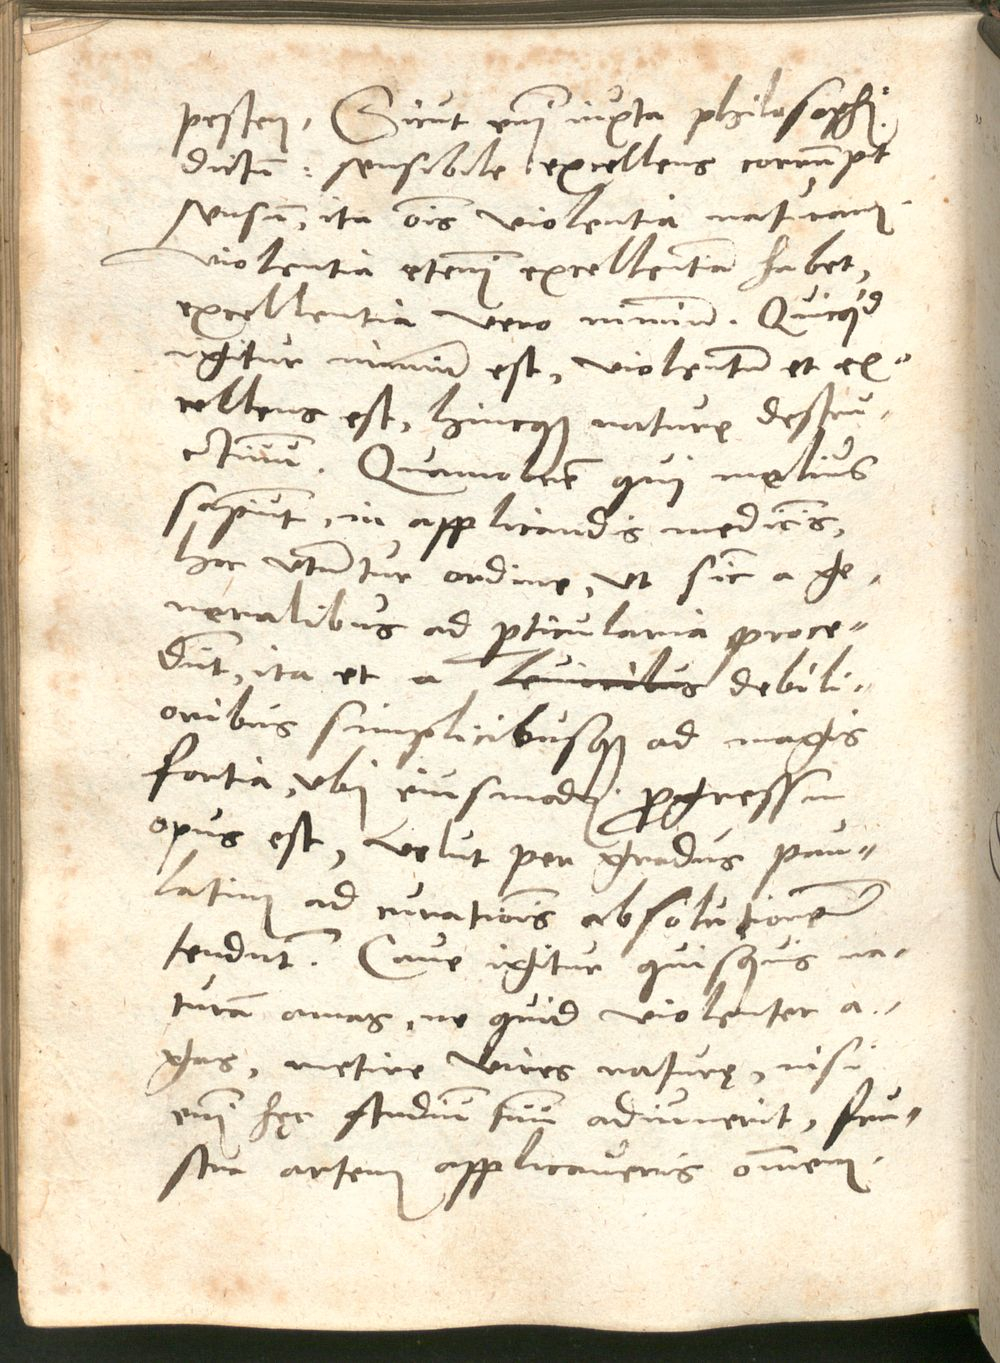 pestem. Sicut em̄ iuxta philosophi.
dictū: sensibile excellens corrūpit
sensū, ita oīs violentia naturam.
Violentia etenī excellentiā habet,
excellentia vero nimiū. Quicqd
igitur nimiū est, violentū et ex-
cellens est, hincq naturę destru-
ctiuū. Quamobrē qui melius
sapiūt, in applicandis medicīs,
hoc vtūtur ordine, vt sic a ge-
neralibus ad pticularia proce-
dūt, ita et a leuioribus debili-
oribus simplicibusq ad magis
fortia, vbi eiusmodi progressu
opus est, velut per gradus pau-
latim ad curatiōis absolutionē
tendūt. Caue igitur quisquis na-
turā amas, ne quid violenter a-
gas, metire vires naturę, nisi
em̄ hęc studiū tuū adiuuerit, fru-
stra artem applicaueris om̄em.